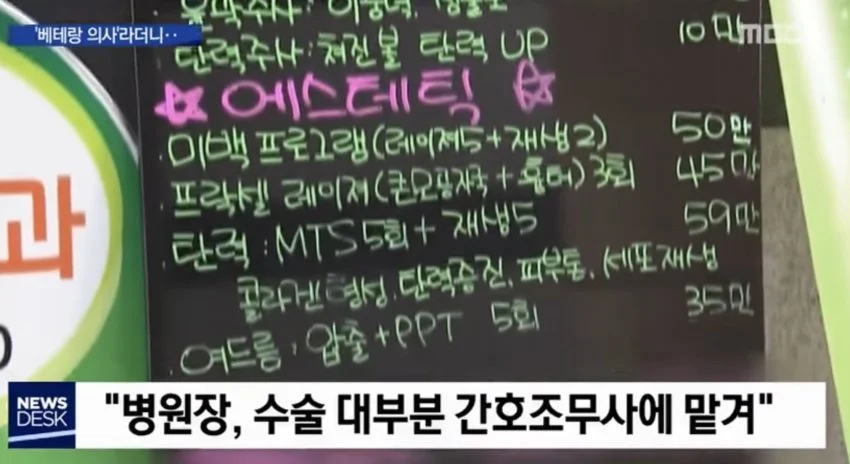 '베테랑 의사'라더니‥
MBC
윤곽주사:
탄력주사: 처진볼 탄력 UP 10만
☆ 에스테틱 ☆
미백 프로그램(레이져5+재생2) 50만
프락셀 레이저(큰모공자국+흉터)3회 45만
탄력: MTS 5회+재생5 59만
콜라겐 형성, 탄력증진, 피부톤, 세포재생
여드름: 압출+PPT 5회 35만
과
NEWS DESK
"병원장, 수술 대부분 간호조무사에 맡겨"